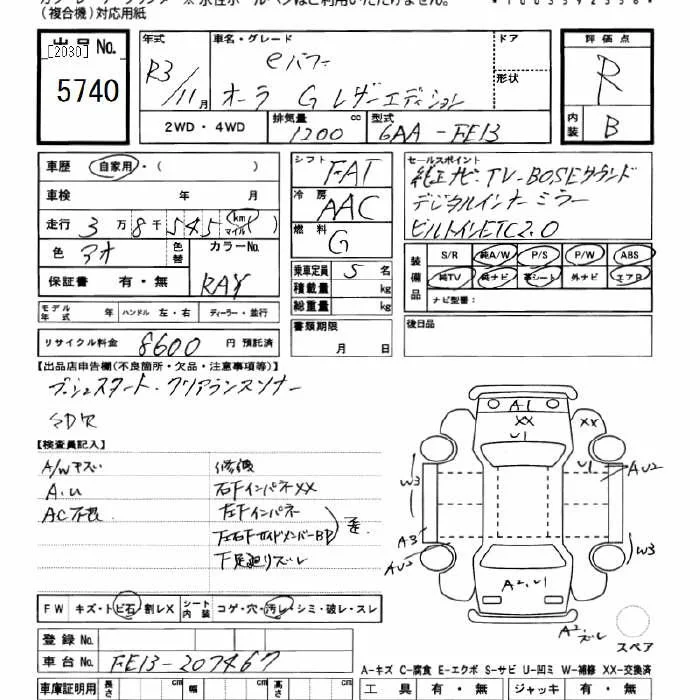 (複合機)対応用紙
出品 No.
[2030]
5740
年式
R3/11月
車名・グレード
eパワー
オーラ G レザーエディション
ドア
形状
評価点
R
内装
B
2WD・4WD
排気量
1200 cc
型式
6AA-FE13
車歴 自家用・( )
車検 年 月
走行 3万8千545 km マイル( )
色 アオ
色替
カラーNo.
RAY
保証書 有・無
モデル年式 年 ハンドル 左・右 ディーラー・並行
リサイクル料金 8600 円 預託済
シフト FAT
冷房 AAC
燃料 G
乗車定員 5 名
積載量 kg
総重量 kg
書類期限
月 日
セールスポイント
純正ナビ・TV-BOSEサウンド
デジタルインナーミラー
ビルトインETC2.0
装備品
S/R 純A/W P/S P/W ABS
純TV 純ナビ 革シート 外ナビ エアB
ナビ型番:
後日品
【出品店申告欄(不良箇所・欠品・注意事項等)】
プッシュスタート・クリアランスソナー
SD欠
【検査員記入】
A/Wキズ
A.U
AC不良
修復
右FインパネXX
左Fインパネ
左右FサイドメンバーBP
歪
下足廻リズレ
FW キズ・トビ石・割レX シート内装 コゲ・穴・汚レ・シミ・破レ・スレ
登録 No.
車台 No. FE13-207467
車庫証明用 長さ cm 幅 cm 高さ cm
A1
XX
U1
XX
U1
AU2
W3
A3
AU2
W3
A2.U1
A2.ズレ
スペア
A-キズ C-腐食 E-エクボ S-サビ U-凹ミ W-補修 XX-交換済
工具 有・無 ジャッキ 有・無